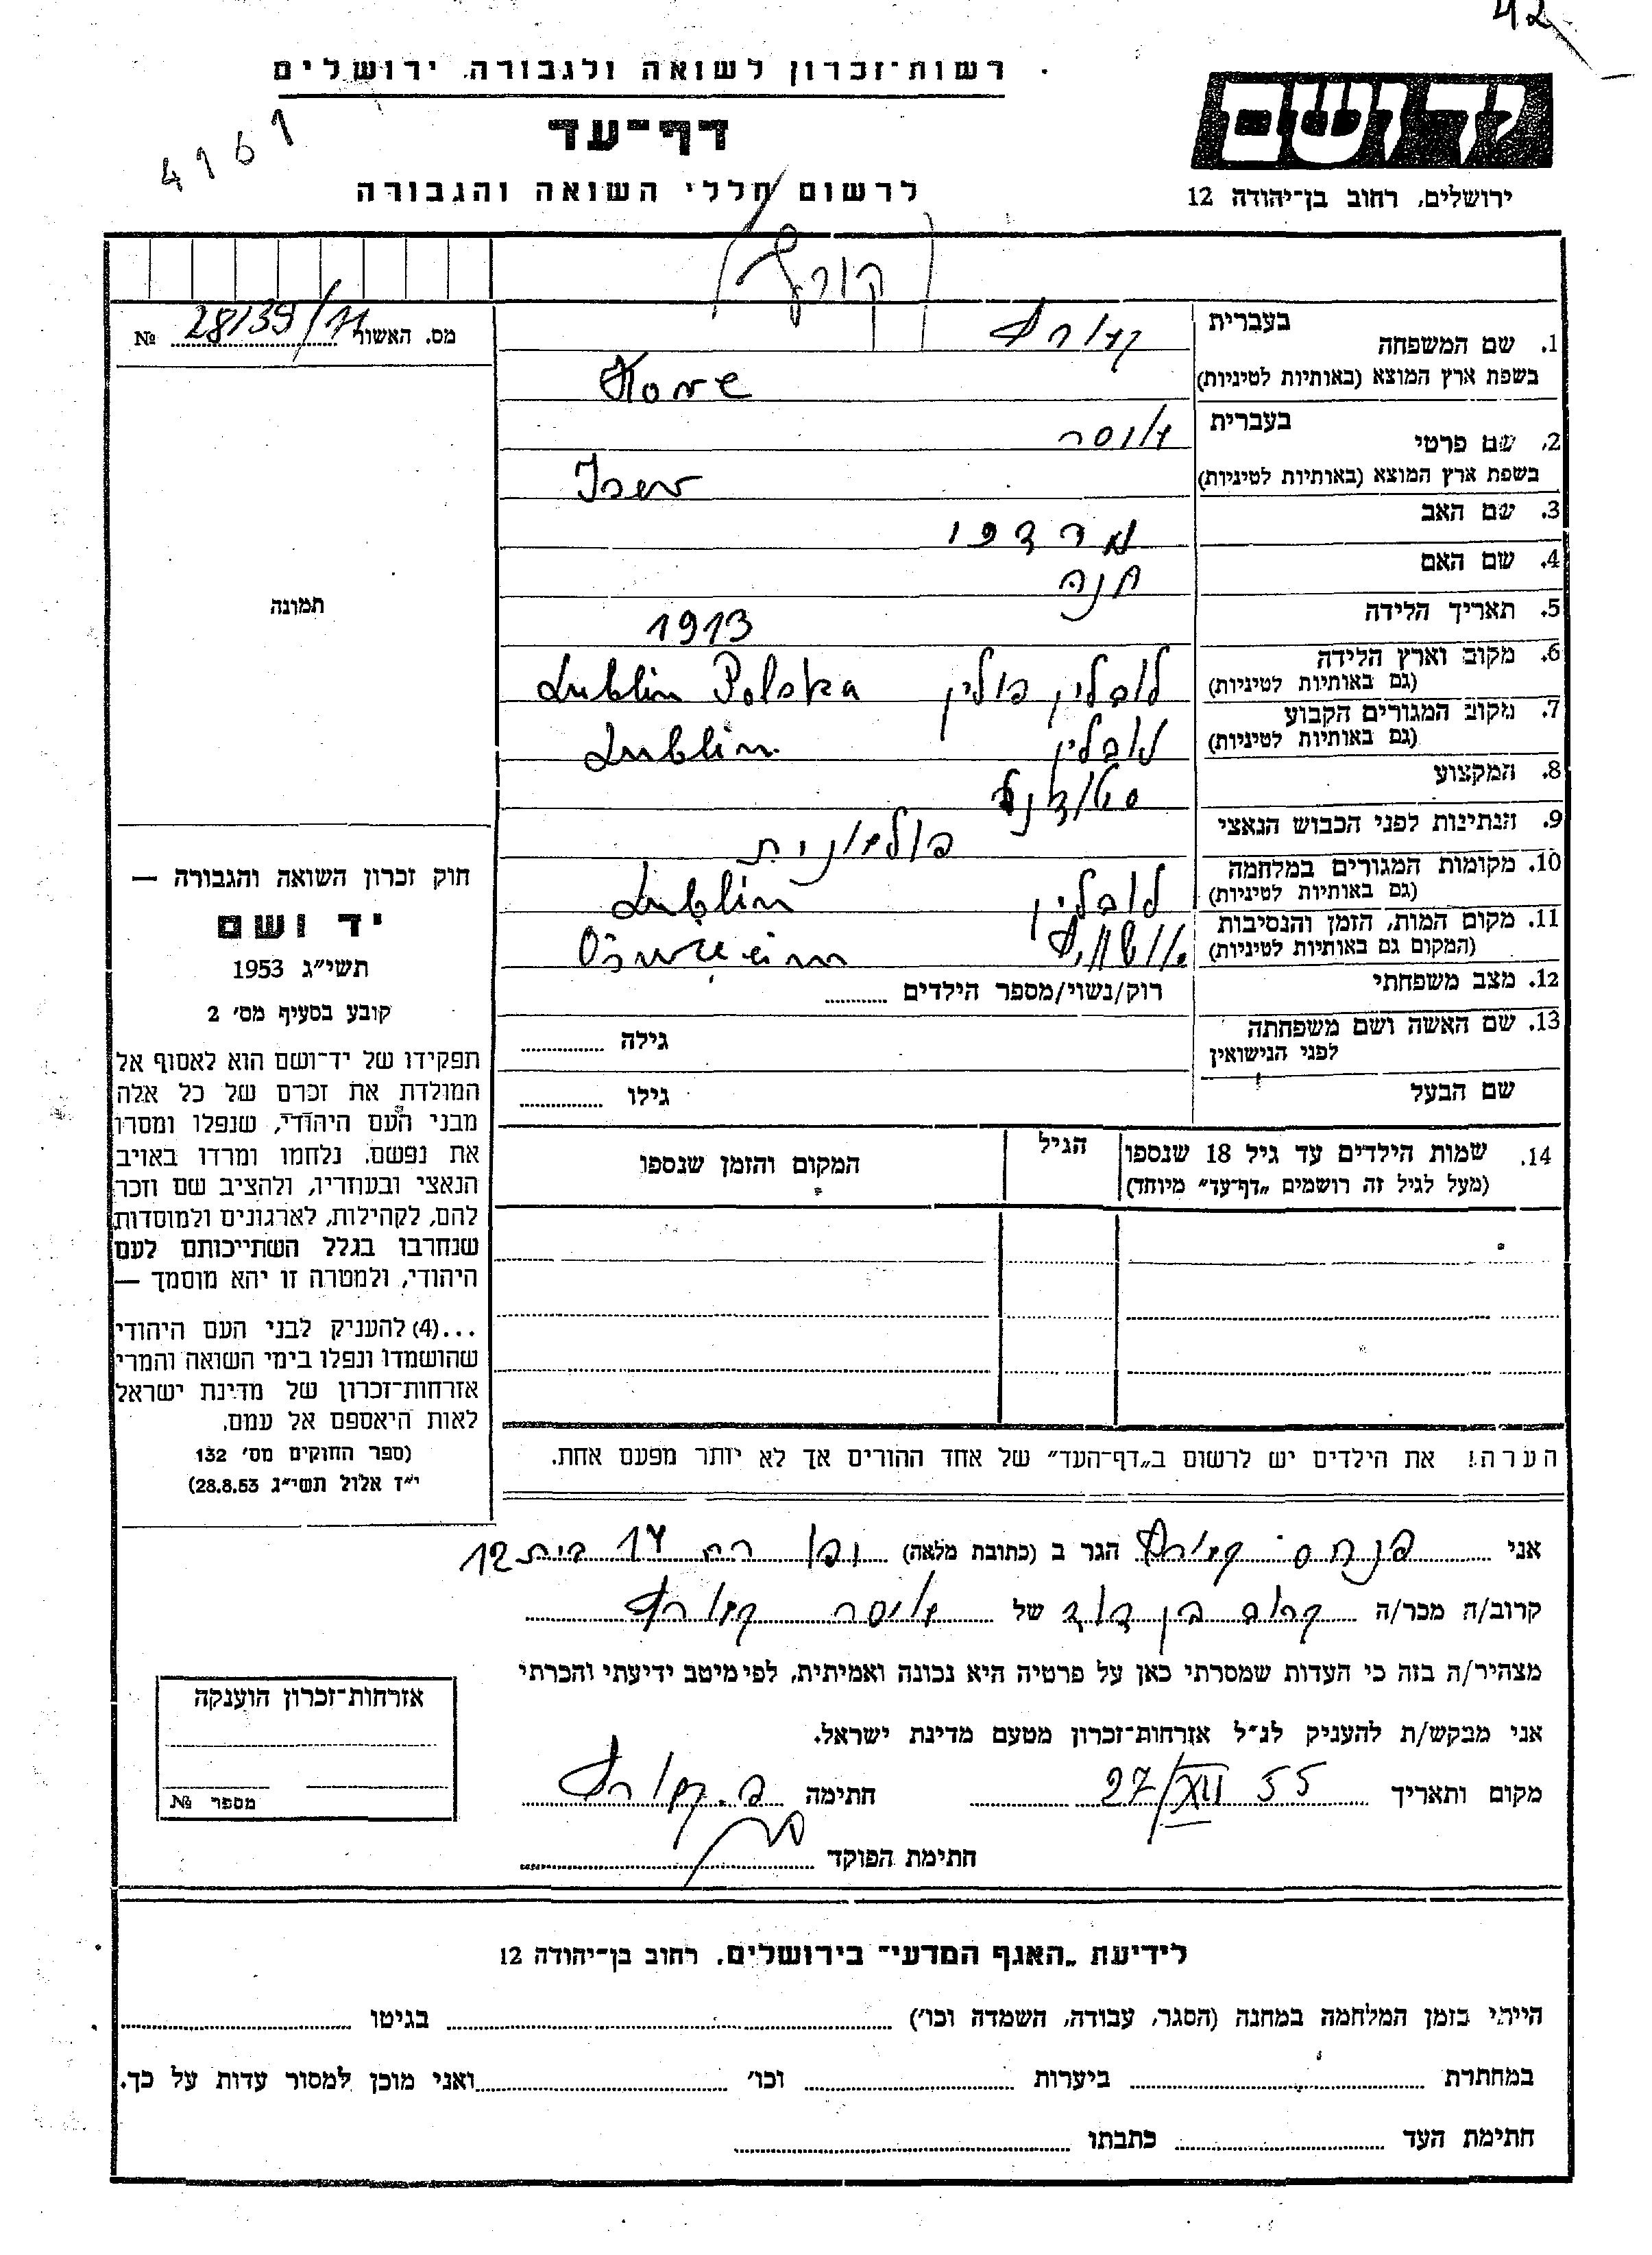 42
רשות־זכרון לשואה ולגבורה, ירושלים
דף־עד
לרשום חללי השואה והגבורה
4161
ידושם
ירושלים, רחוב בן־יהודה 12
מס. האשור № 28/39/
1. שם המשפחה בעברית
בשפת ארץ המוצא (באותיות לטיניות)
2. שם פרטי בעברית איסר
בשפת ארץ המוצא (באותיות לטיניות) Iser
3. שם האב מרדכי
4. שם האם חנה
5. תאריך הלידה 1913
6. מקום וארץ הלידה לובלין פולין Lublin Polska
(גם באותיות לטיניות)
7. מקום המגורים הקבוע לובלין Lublin
(גם באותיות לטיניות)
8. המקצוע סטודנט
9. הנתינות לפני הכבוש הנאצי פולאנית
10. מקומות המגורים במלחמה לובלין Lublin
(גם באותיות לטיניות)
11. מקום המות, הזמן והנסיבות
(המקום גם באותיות לטיניות)
12. מצב משפחתי רוק/נשוי/מספר הילדים
13. שם האשה ושם משפחתה גילה
לפני הנישואין
שם הבעל גילו
14. שמות הילדים עד גיל 18 שנספו הגיל המקום והזמן שנספו
(מעל לגיל זה רושמים „דף־עד” מיוחד)
הערה! את הילדים יש לרשום ב„דף־העד” של אחד ההורים אך לא יותר מפעם אחת.
תמונה
חוק זכרון השואה והגבורה —
יד ושם
תשי״ג 1953
קובע בסעיף מס׳ 2
תפקידו של יד־ושם הוא לאסוף אל
המולדת את זכרם של כל אלה
מבני העם היהודי, שנפלו ומסרו
את נפשם, נלחמו ומרדו באויב
הנאצי ובעוזריו, ולהציב שם וזכר
להם, לקהילות, לארגונים ולמוסדות
שנחרבו בגלל השתייכותם לעם
היהודי, ולמטרה זו יהא מוסמך —
...(4) להעניק לבני העם היהודי
שהושמדו ונפלו בימי השואה והמרי
אזרחות־זכרון של מדינת ישראל
לאות היאספם אל עמם.
(ספר החוקים מס׳ 132
י״ז אלול תשי״ג 28.8.53)
אני פנחס הגר ב (כתובת מלאה) בית 12
קרוב/ה מכר/ה קרוב בן דוד של איסר
מצהיר/ה בזה כי העדות שמסרתי כאן על פרטיה היא נכונה ואמיתית, לפי מיטב ידיעתי והכרתי
אני מבקש/ת להעניק לנ״ל אזרחות־זכרון מטעם מדינת ישראל.
מקום ותאריך 27/XII 55 חתימה
חתימת הפוקד
אזרחות־זכרון הוענקה
מספר №
לידיעת „האגף המדעי” בירושלים, רחוב בן־יהודה 12
הייתי בזמן המלחמה במחנה (הסגר, עבודה, השמדה וכו׳) בגיטו
במחתרת ביערות וכו׳ ואני מוכן למסור עדות על כך.
חתימת העד כתבתו